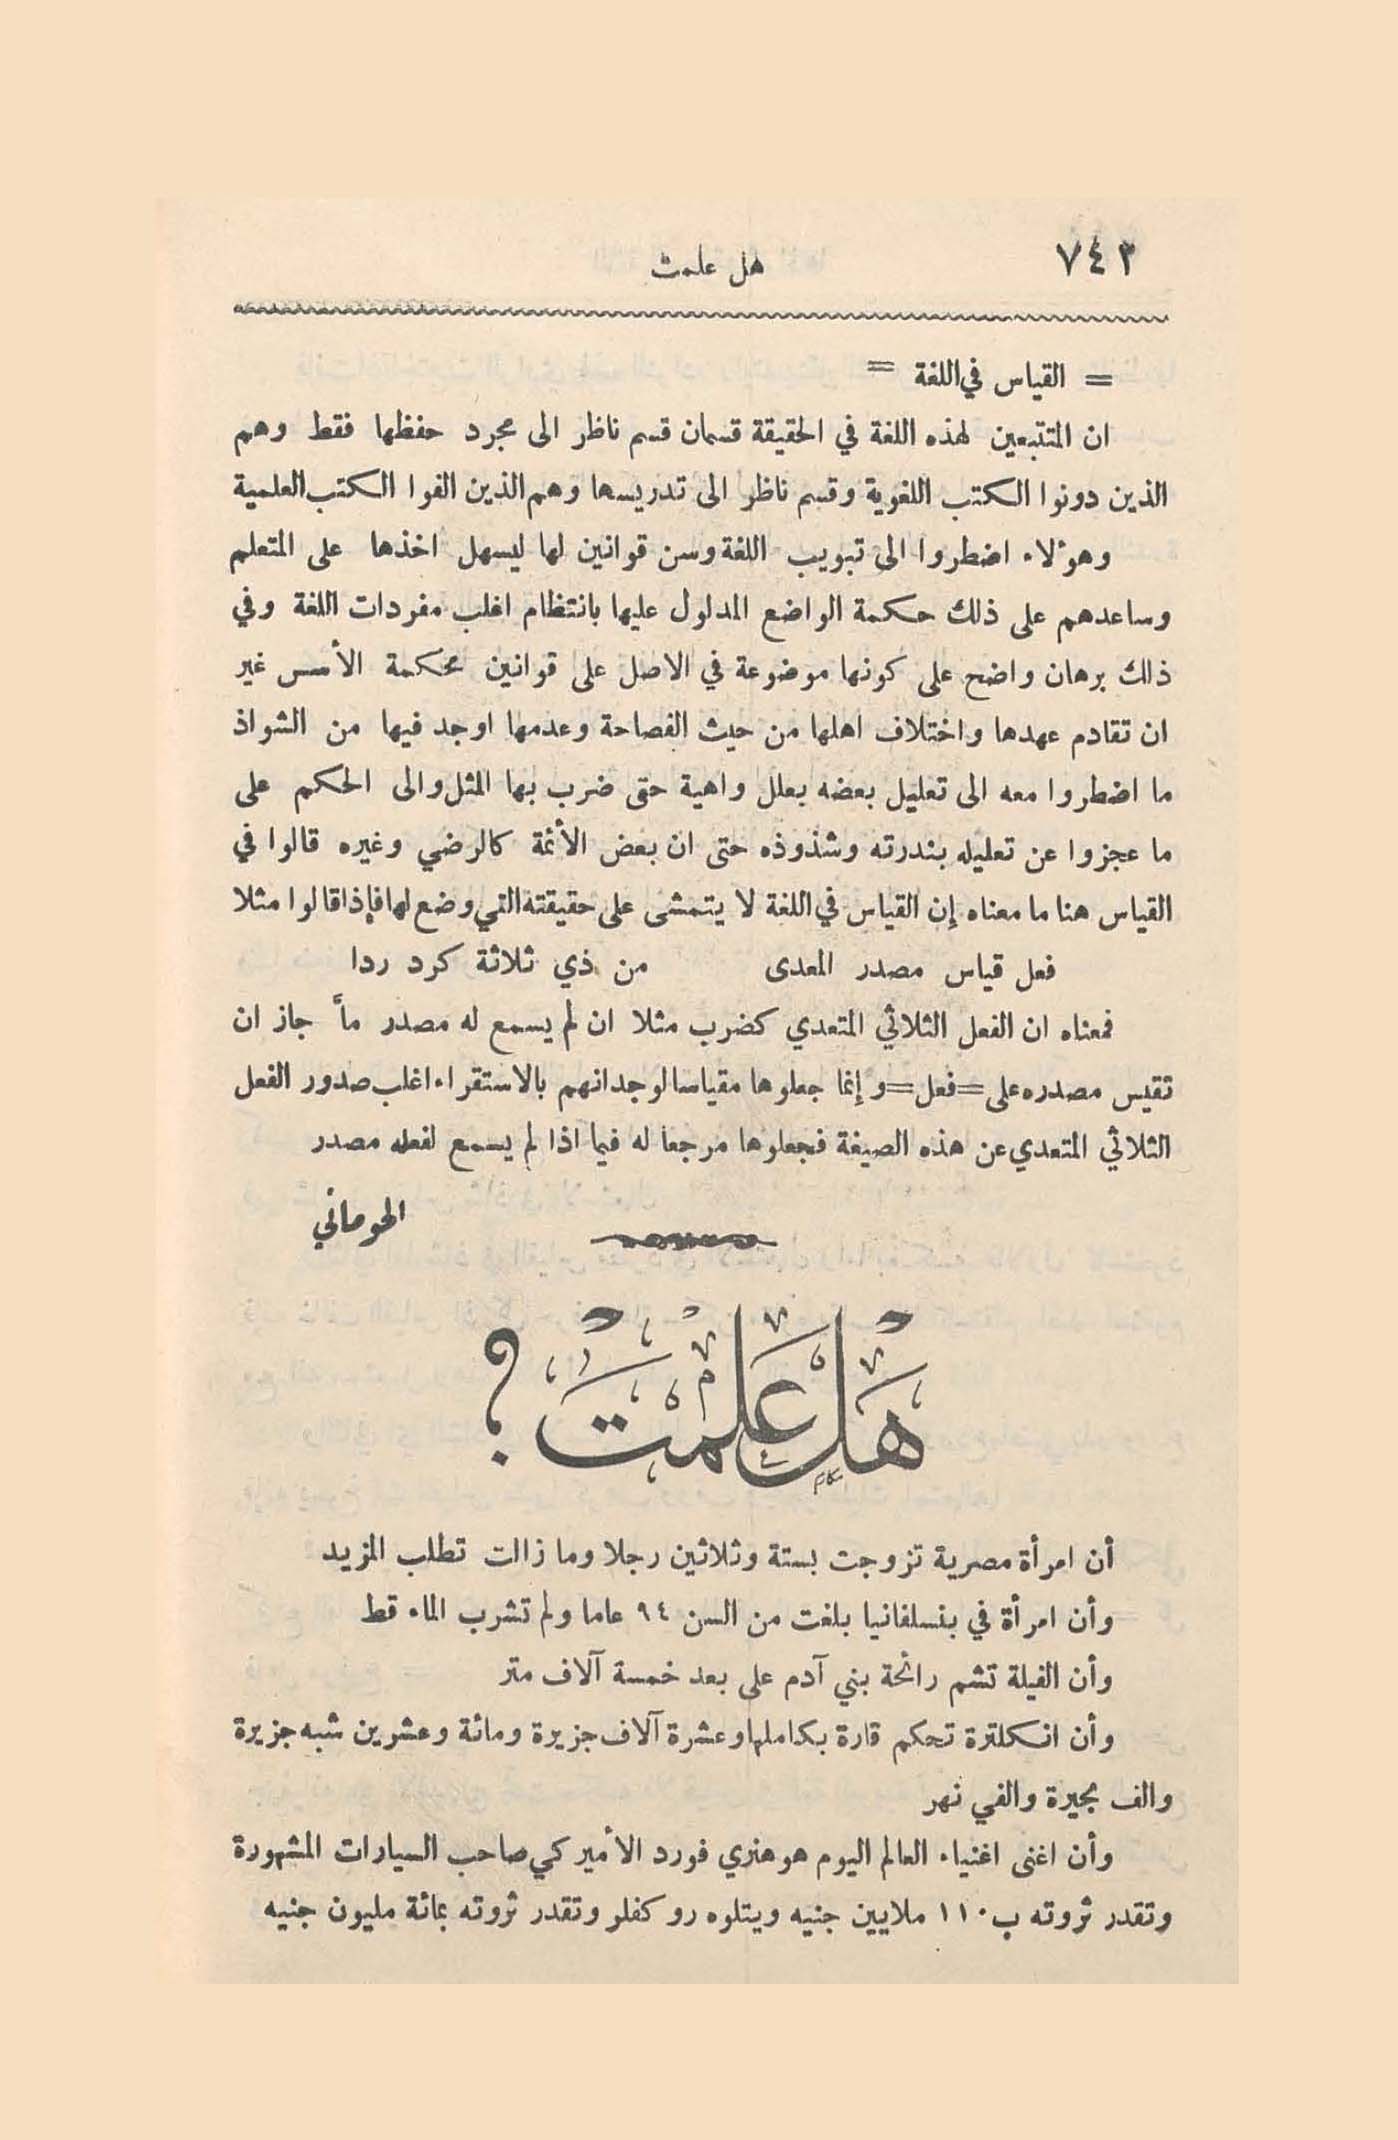 ٧٤٢
هل علمت
= القياس في اللغة =
ان المتتبعين لهذه اللغة في الحقيقة قسمان قسم ناظر الى مجرد حفظها فقط وهم
الذين دونوا الكتب اللغوية وقسم ناظر الى تدريسها وهم الذين الفوا الكتب العلمية
وهؤلاء اضطروا الى تبويب اللغة وسن قوانين لها ليسهل اخذها على المتعلم
وساعدهم على ذلك حكمة الواضع المدلول عليها بانتظام اغلب مفردات اللغة وفي
ذلك برهان واضح على كونها موضوعة في الاصل على قوانين محكمة الأسس غير
ان تقادم عهدها واختلاف اهلها من حيث الفصاحة وعدمها اوجد فيها من الشواذ
ما اضطروا معه الى تعليل بعضه بعلل واهية حتى ضرب بها المثل والى الحكم على
ما عجزوا عن تعليله بندرته وشذوذه حتى ان بعض الأئمة كالرضي وغيره قالوا في
القياس هنا ما معناه إن القياس في اللغة لا يتمشى على حقيقته التي وضع لها فإذا قالوا مثلا
فعل قياس مصدر المعدى من ذي ثلاثة كرد ردا
فمعناه ان الفعل الثلاثي المتعدي كضرب مثلا ان لم يسمع له مصدر مأ جاز ان
تقيس مصدره على = فعل = وإنما جعلوها مقياسا لوجدانهم بالاستقراء اغلب صدور الفعل
الثلاثي المتعدي عن هذه الصيغة فجعلوها مرجعا له فيما اذا لم يسمع لفعله مصدر
الحوماني
هَلْ عَلِمْتَ؟
أن امرأة مصرية تزوجت بستة وثلاثين رجلا وما زالت تطلب المزيد
وأن امرأة في بنسلفانيا بلغت من السن ٩٤ عاما ولم تشرب الماء قط
وأن الفيلة تشم رائحة بني آدم على بعد خمسة آلاف متر
وأن انكلترة تحكم قارة بكاملها وعشرة آلاف جزيرة ومائة وعشرين شبه جزيرة
والف بحيرة والفي نهر
وأن اغنى اغنياء العالم اليوم هو هنري فورد الأميركي صاحب السيارات المشهورة
وتقدر ثروته ب ١١٠ ملايين جنيه ويتلوه روكفلر وتقدر ثروته بمائة مليون جنيه